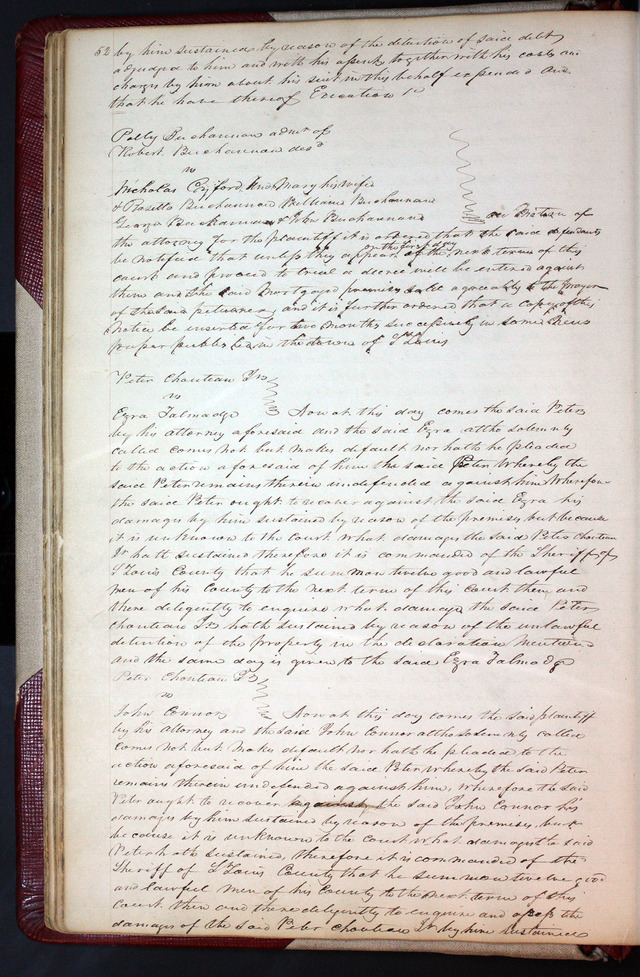 52 by him sustained by reason of the detention of said debt
adjudged to him and with his assent together with his costs and
charges by him about his suit in this behalf expended and
that he have thereof Execution &c
Polly Buchannan admx of
Robert Buchannan decd
vs
Nicholas and Mary his wife
& Rosetta Buchannan William Buchannan
George Buchannan & John Buchannan on Motion of
the attorney for the plaintiff it is ordered that the said defendants
be notified that unless they appear on the first day of the next term of this
court and proceed to trial a decree will be entered against
them and the said Mortgaged premises sold agreeably to the prayer
of the said and it is further ordered that a copy of this
Notice be inserted for two months successively in some News
paper published in the town of St Louis
Peter Chouteau Jr
vs
Ezra Talmadge Now at this day comes the said Peter
by his attorney aforesaid and the said Ezra altho solemnly
called comes not but makes default nor hath he pleaded
to the action aforesaid of him the said Peter Whereby the
said Peter remains therein undefended against him Wherefore
the said Peter ought to recover against the said Ezra his
damages by him sustained by reason of the premises but because
it is unknown to the court what damages the said Peter Chouteau
Jr hath sustained therefore it is commanded of the Sheriff of
St Louis County that he summon twelve good and lawful
men of his County to the next term of this Court then and
there diligently to enquire what damages the said Peter
Chouteau Jr hath sustained by reason of the unlawful
detention of the property in the declaration mentioned
and the same day is given to the said Ezra Talmadge
Peter Chouteau Jr
vs
John Connor Now at this day comes the said plaintiff
by his attorney and the said John Connor altho solemnly called
comes not but makes default nor hath he pleaded to the
action aforesaid of him the said Peter Whereby the said Peter
remains therein undefended against him, Wherefore the said
Peter ought to recover against the said John Connor his
damages by him sustained by reason of the premises, but
because it is unknown to the court what damages the said
Peter hath sustained, therefore it is commanded of the
Sheriff of St Louis County that he summon twelve good
and lawful men of his County to the next term of this
Court then and there diligently to enquire and assess the
damages of the said Peter Chouteau Jr by him sustained